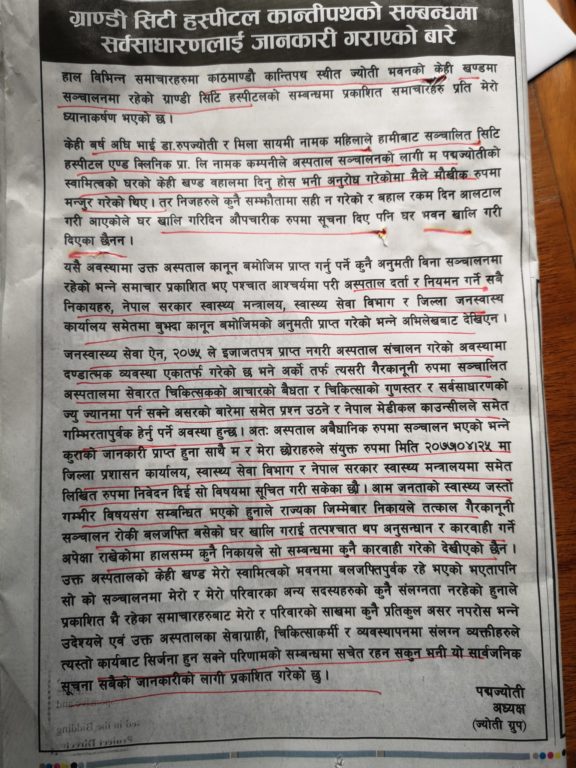 ग्राण्डी सिटी हस्पीटल कान्तीपथको सम्बन्धमा
सर्वसाधारणलाई जानकारी गराएको बारे
हाल विभिन्न समाचारहरुमा काठमाण्डौ कान्तिपथ स्थीत ज्योती भवनको केही खण्डमा
सञ्चालनमा रहेको ग्राण्डी सिटि हस्पीटलको सम्बन्धमा प्रकाशित समाचारहरु प्रति मेरो
ध्यानाकर्षण भएको छ ।
केही बर्ष अघि भाई डा.रुपज्योती र मिला सायमी नामक महिलाले हामीबाट सञ्चालित सिटि
हस्पीटल एण्ड क्लिनिक प्रा. लि नामक कम्पनीले अस्पताल सञ्चालनको लागी म पद्मज्योतीको
स्वामित्वको घरको केही खण्ड बहालमा दिनु होस भनी अनुरोध गरेकोमा मैले मौखीक रुपमा
मन्जुर गरेको थिए । तर निजहरुले कुनै सम्झौतामा सही न गरेको र बहाल रकम दिन आलटाल
गरी आएकोले घर खालि गरिदिन औपचारीक रुपमा सूचना दिए पनि घर भवन खालि गरी
दिएका छैनन ।
यसै अवस्थामा उक्त अस्पताल कानून बमोजिम प्राप्त गर्नु पर्ने कुनै अनुमती बिना सञ्चालनमा
रहेको भन्ने समाचार प्रकाशित भए पश्चात आश्चर्यमा परी अस्पताल दर्ता र नियमन गर्ने सबै
निकायहरु, नेपाल सरकार स्वास्थ्य मन्त्रालय, स्वास्थ्य सेवा विभाग र जिल्ला जनस्वास्थ्य
कार्यालय समेतमा बुझ्दा कानून बमोजिमको अनुमती प्राप्त गरेको भन्ने अभिलेखबाट देखिएन ।
जनस्वास्थ्य सेवा ऐन, २०७५ ले इजाजतपत्र प्राप्त नगरी अस्पताल संचालन गरेको अवस्थामा
दण्डात्मक व्यवस्था एकातर्फ गरेको छ भने अर्को तर्फ त्यसरी गैरकानूनी रुपमा सञ्चालित
अस्पतालमा सेवारत चिकित्सकको आचारको बैधता र चिकित्साको गुणस्तर र सर्वसाधारणको
ज्यु ज्यानमा पर्न सक्ने असरको बारेमा समेत प्रश्न उठने र नेपाल मेडीकल काउन्सीलले समेत
गम्भिरतापुर्वक हेर्नु पर्ने अवस्था हुन्छ । अतः अस्पताल अबैधानिक रुपमा सञ्चालन भएको भन्ने
कुराको जानकारी प्राप्त हुना साथै म र मेरा छोराहरुले संयुक्त रुपमा मिति २०७७।०४।२५ मा
जिल्ला प्रशासन कार्यालय, स्वास्थ्य सेवा विभाग र नेपाल सरकार स्वास्थ्य मन्त्रालयमा समेत
लिखित रुपमा निवेदन दिई सो विषयमा सूचित गरी सकेका छौ । आम जनताको स्वास्थ्य जस्तो
गम्भीर विषयसंग सम्बन्धित भएको हुनाले राज्यका जिम्मेबार निकायले तत्काल गैरकानूनी
सञ्चालन रोकी बलजफ्ति बसेको घर खालि गराई तत्पश्चात थप अनुसन्धान र कारवाही गर्ने
अपेक्षा राखेकोमा हालसम्म कुनै निकायले सो सम्बन्धमा कुनै कारवाही गरेको देखीएको छैन ।
उक्त अस्पतालको केही खण्ड मेरो स्वामित्वको भवनमा बलजफ्तिपुर्वक रहे भएको भएतापनि
सो को सञ्चालनमा मेरो र मेरो परिवारका अन्य सदस्यहरुको कुनै संलग्नता नरहेको हुनाले
प्रकाशित भै रहेका समाचारहरुबाट मेरो र परिवारको साखमा कुनै प्रतिकुल असर नपरोस भन्ने
उदेश्यले एवं उक्त अस्पतालका सेवाग्राही, चिकित्साकर्मी र व्यवस्थापनमा संलग्न व्यक्तीहरुले
त्यस्तो कार्यबाट सिर्जना हुन सक्ने परिणामको सम्बन्धमा सचेत रहन सकुन भनी यो सार्वजनिक
सूचना सबैको जानकारीको लागी प्रकाशित गरेको छु ।
पद्मज्योती
अध्यक्ष
(ज्योती ग्रुप)